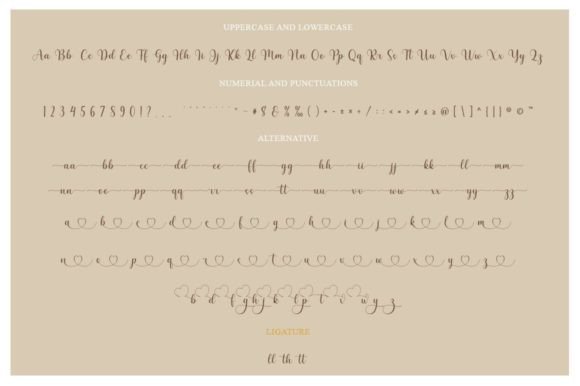 UPPERCASE AND LOWERCASE
Aa Bb Cc Dd Ee Ff Gg Hh Ii Jj Kk Ll Mm Nn Oo Pp Qq Rr Ss Tt Uu Vv Ww Xx Yy Zz
NUMERIAL AND PUNCTUATIONS
1 2 3 4 5 6 7 8 9 0 ! ? . . . # $ & % ‰ ( ) + - ± × ÷ / : : < = > ≠ ≤ ≥ @ [ \ ] ^ { | } ® © ™
ALTERNATIVE
aa bb cc dd ee ff gg hh ii jj kk ll mm
nn oo pp qq rr ss tt uu vv ww xx yy zz
a b c d e f g h i j k l m
n o p q r s t u v w x y z
b d f g h j k l p t v w y z
LIGATURE
ll th tt